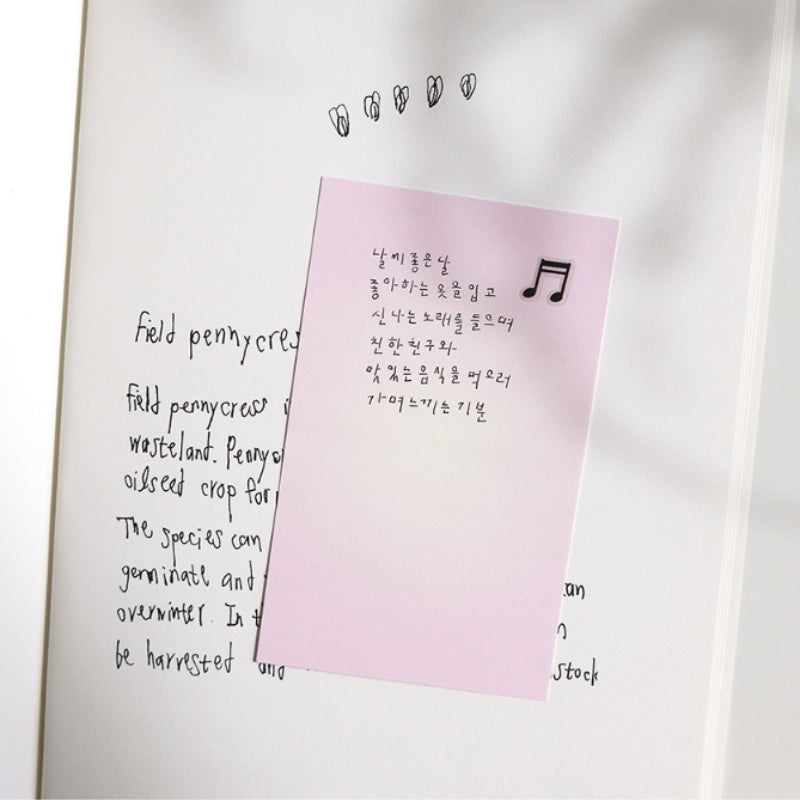 Field pennycres
Field pennycress i
wasteland. Penny
oilseed crop for
The species can
germinate and
overwinter. In t
be harvested and
날씨 좋은 날
좋아하는 옷을 입고
신나는 노래를 들으며
친한 친구와
맛있는 음식을 먹으러
가며 느끼는 기분
can
n
stock